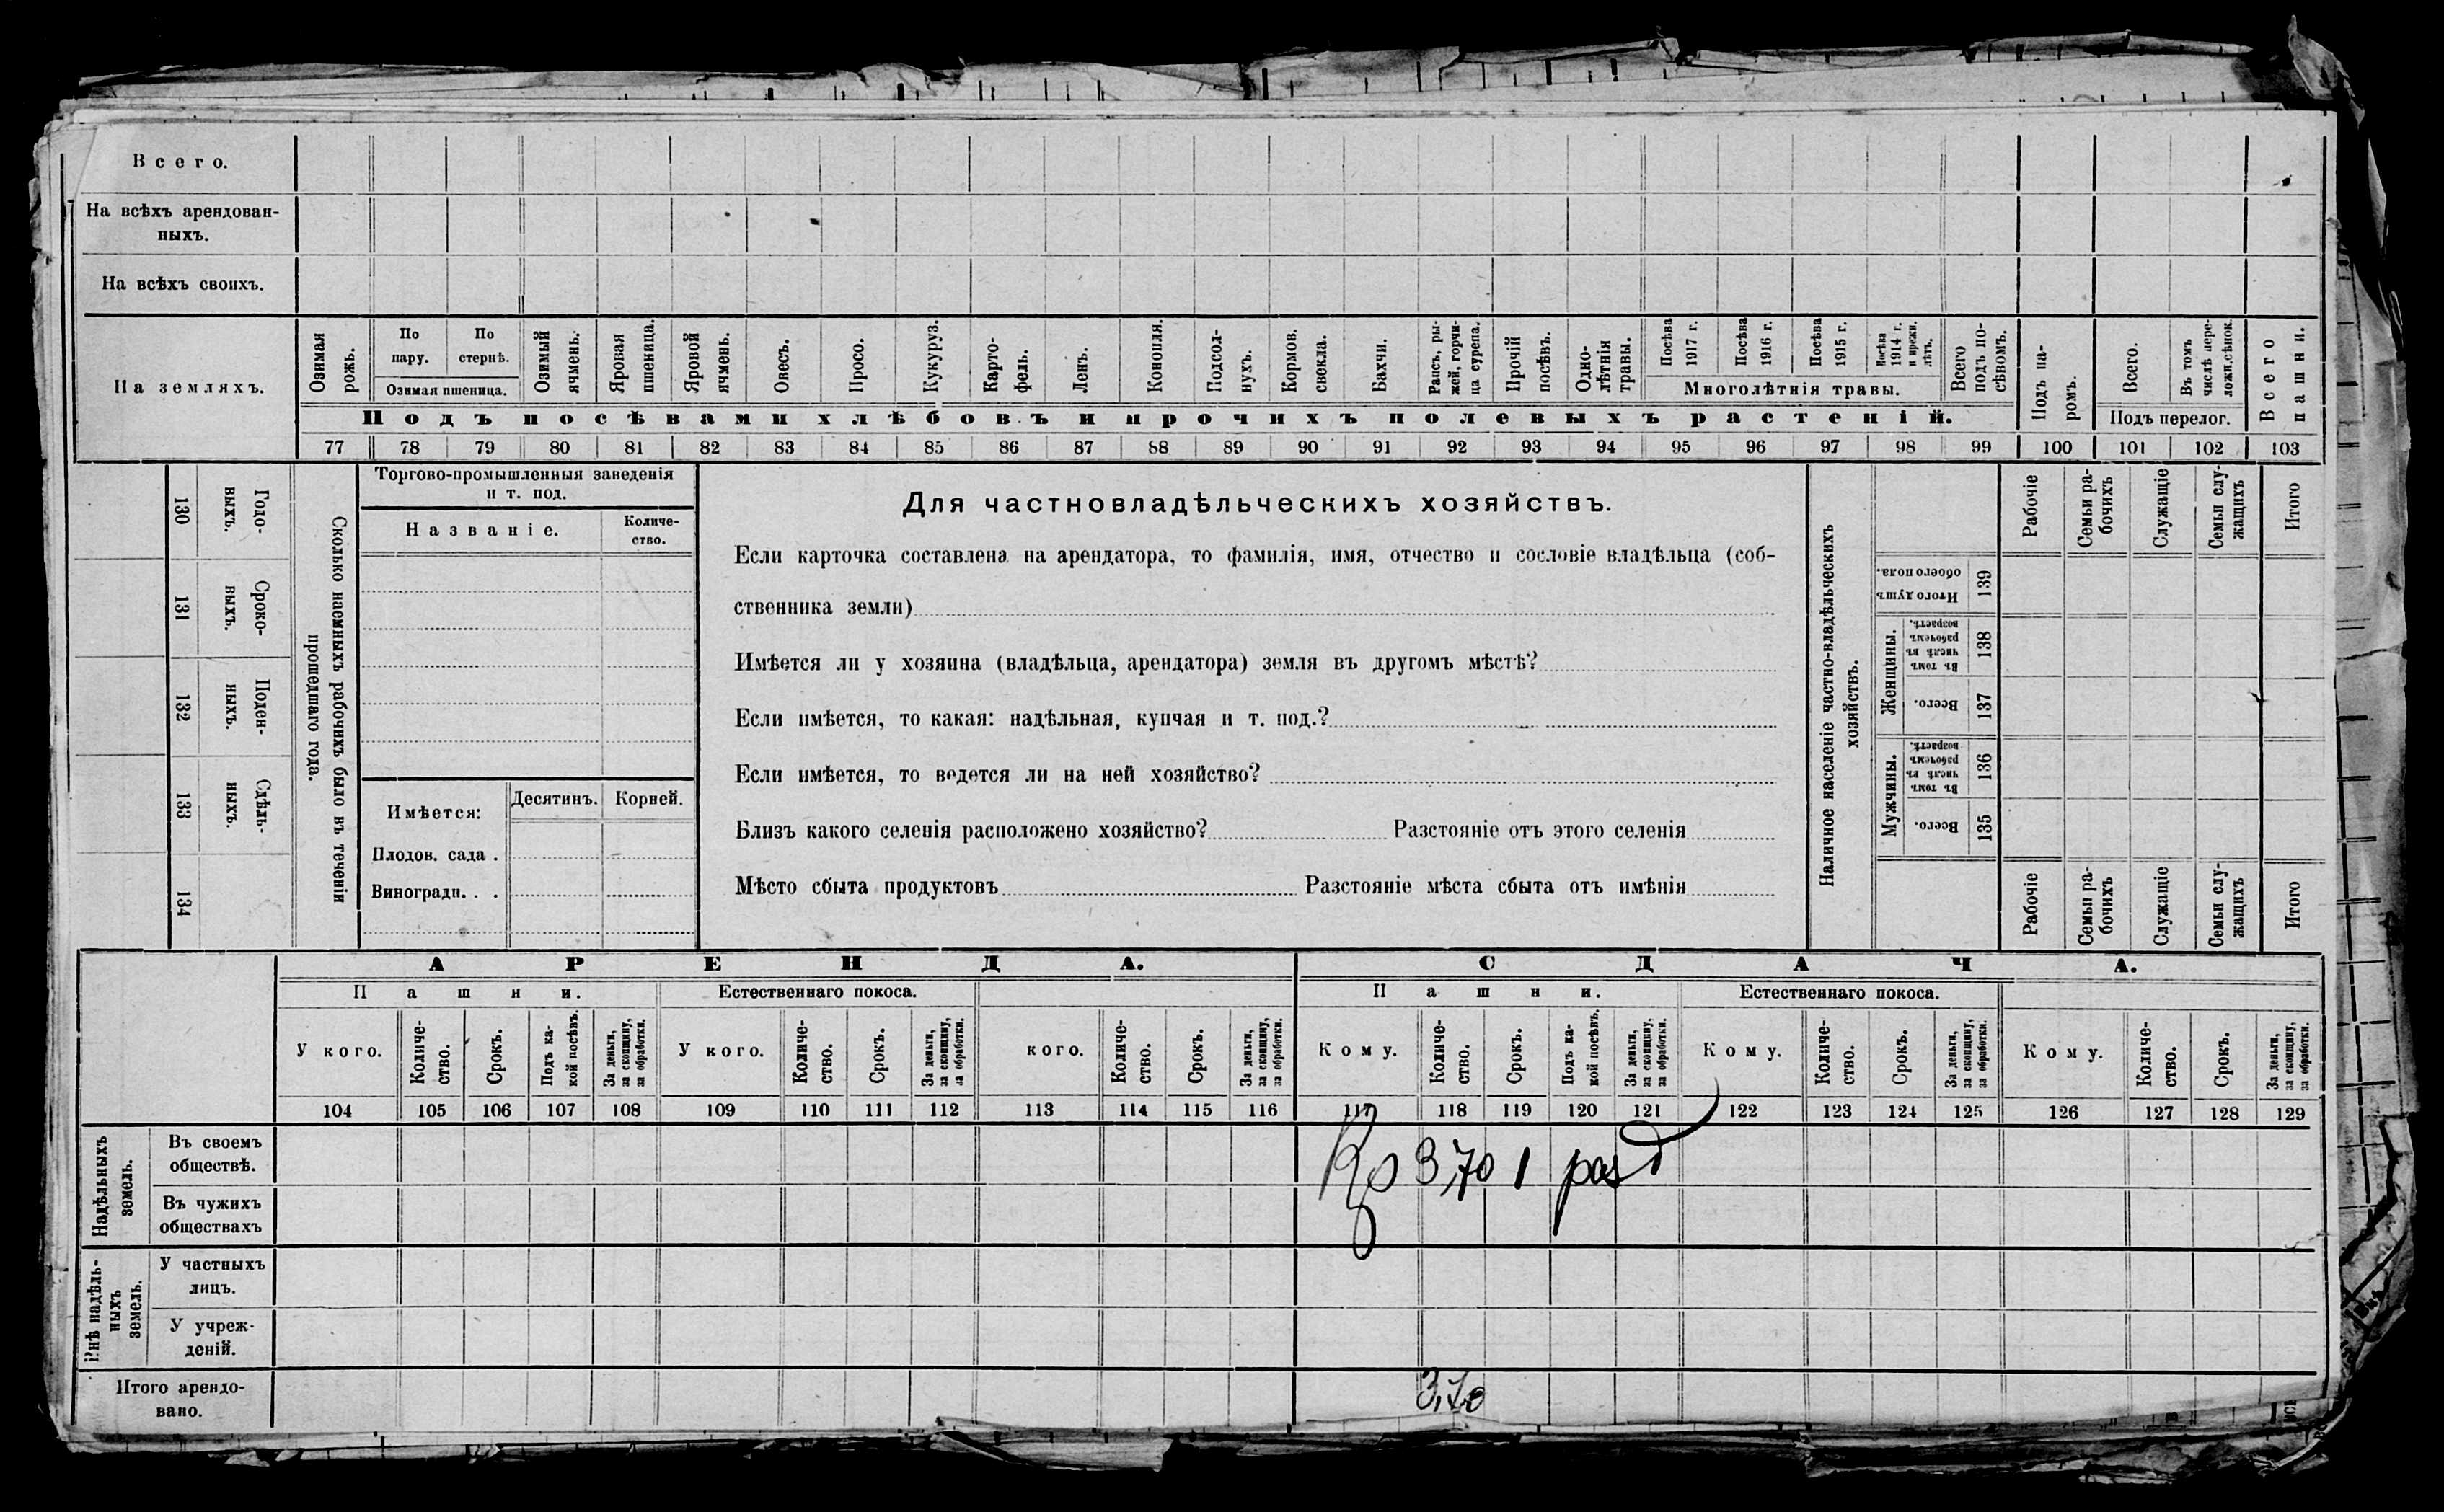 Всего.
На всѣхъ арендован-
ныхъ.
На всѣхъ своихъ.
На земляхъ.
Озимая рожь.
По пару.
По стернѣ.
Озимая пшеница.
Озимый ячмень.
Яровая пшеница.
Яровой ячмень.
Овесъ.
Просо.
Кукуруз.
Карто-
фель.
Ленъ.
Конопля.
Подсол-
нухъ.
Кормов. свекла.
Бахчи.
Рапсъ, ры-
жей, горчи-
ца сурепа.
Прочій посѣвъ.
Одно-
лѣтнія травы.
Посѣва 1917 г.
Посѣва 1916 г.
Посѣва 1915 г.
Посѣва 1914 г. и прежн. лѣтъ.
Многолѣтнія травы.
Всего подъ по-
сѣвомъ.
Подъ посѣвами хлѣбовъ и прочихъ полевыхъ растеній.
Подъ па-
ромъ.
Всего.
Въ томъ числѣ пере-
ложн.сѣнок.
Подъ перелог.
Всего пашни.
77 78 79 80 81 82 83 84 85 86 87 88 89 90 91 92 93 94 95 96 97 98 99 100 101 102 103
130 Годо-
выхъ.
131 Сроко-
выхъ.
132 Поден-
ныхъ.
133 Сдѣль-
ныхъ.
134
Сколько наемныхъ рабочихъ было въ теченіи
прошедшаго года.
Торгово-промышленныя заведенія
и т. под.
Названіе.
Количе-
ство.
Имѣется:
Десятинъ.
Корней.
Плодов. сада .
Виноградн. . .
Для частновладѣльческихъ хозяйствъ.
Если карточка составлена на арендатора, то фамилія, имя, отчество и сословіе владѣльца (соб-
ственника земли)
Имѣется ли у хозяина (владѣльца, арендатора) земля въ другомъ мѣстѣ?
Если имѣется, то какая: надѣльная, купчая и т. под.?
Если имѣется, то ведется ли на ней хозяйство?
Близъ какого селенія расположено хозяйство? Разстояніе отъ этого селенія
Мѣсто сбыта продуктовъ Разстояніе мѣста сбыта отъ имѣнія
Наличное населеніе частно-владѣльческихъ
хозяйствъ.
Рабочіе
Семьи ра-
бочихъ
Служащіе
Семьи слу-
жащихъ
Итого
Итого душъ обоего пола. 139
Женщины.
Въ томъ числѣ въ рабочемъ возрастѣ. 138
Всего. 137
Мужчины.
Въ томъ числѣ въ рабочемъ возрастѣ. 136
Всего. 135
Рабочіе
Семьи ра-
бочихъ
Служащіе
Семьи слу-
жащихъ
Итого
АРЕНДА.
СДАЧА.
Пашни.
Естественнаго покоса.
Пашни.
Естественнаго покоса.
У кого.
Количе-
ство.
Срокъ.
Подъ ка-
кой посѣвъ.
За деньги, за скопщину, за обработки.
У кого.
Количе-
ство.
Срокъ.
За деньги, за скопщину, за обработки.
кого.
Количе-
ство.
Срокъ.
За деньги, за скопщину, за обработки.
Кому.
Количе-
ство.
Срокъ.
Подъ ка-
кой посѣвъ.
За деньги, за скопщину, за обработки.
Кому.
Количе-
ство.
Срокъ.
За деньги, за скопщину, за обработки.
Кому.
Количе-
ство.
Срокъ.
За деньги, за скопщину, за обработки.
104 105 106 107 108 109 110 111 112 113 114 115 116 117 118 119 120 121 122 123 124 125 126 127 128 129
Надѣльныхъ
земель.
Въ своемъ
обществѣ.
3,70 1
Въ чужихъ
обществахъ
Внѣ надѣль-
ныхъ
земель.
У частныхъ
лицъ.
У учреж-
деній.
Итого арендо-
вано.
3,70